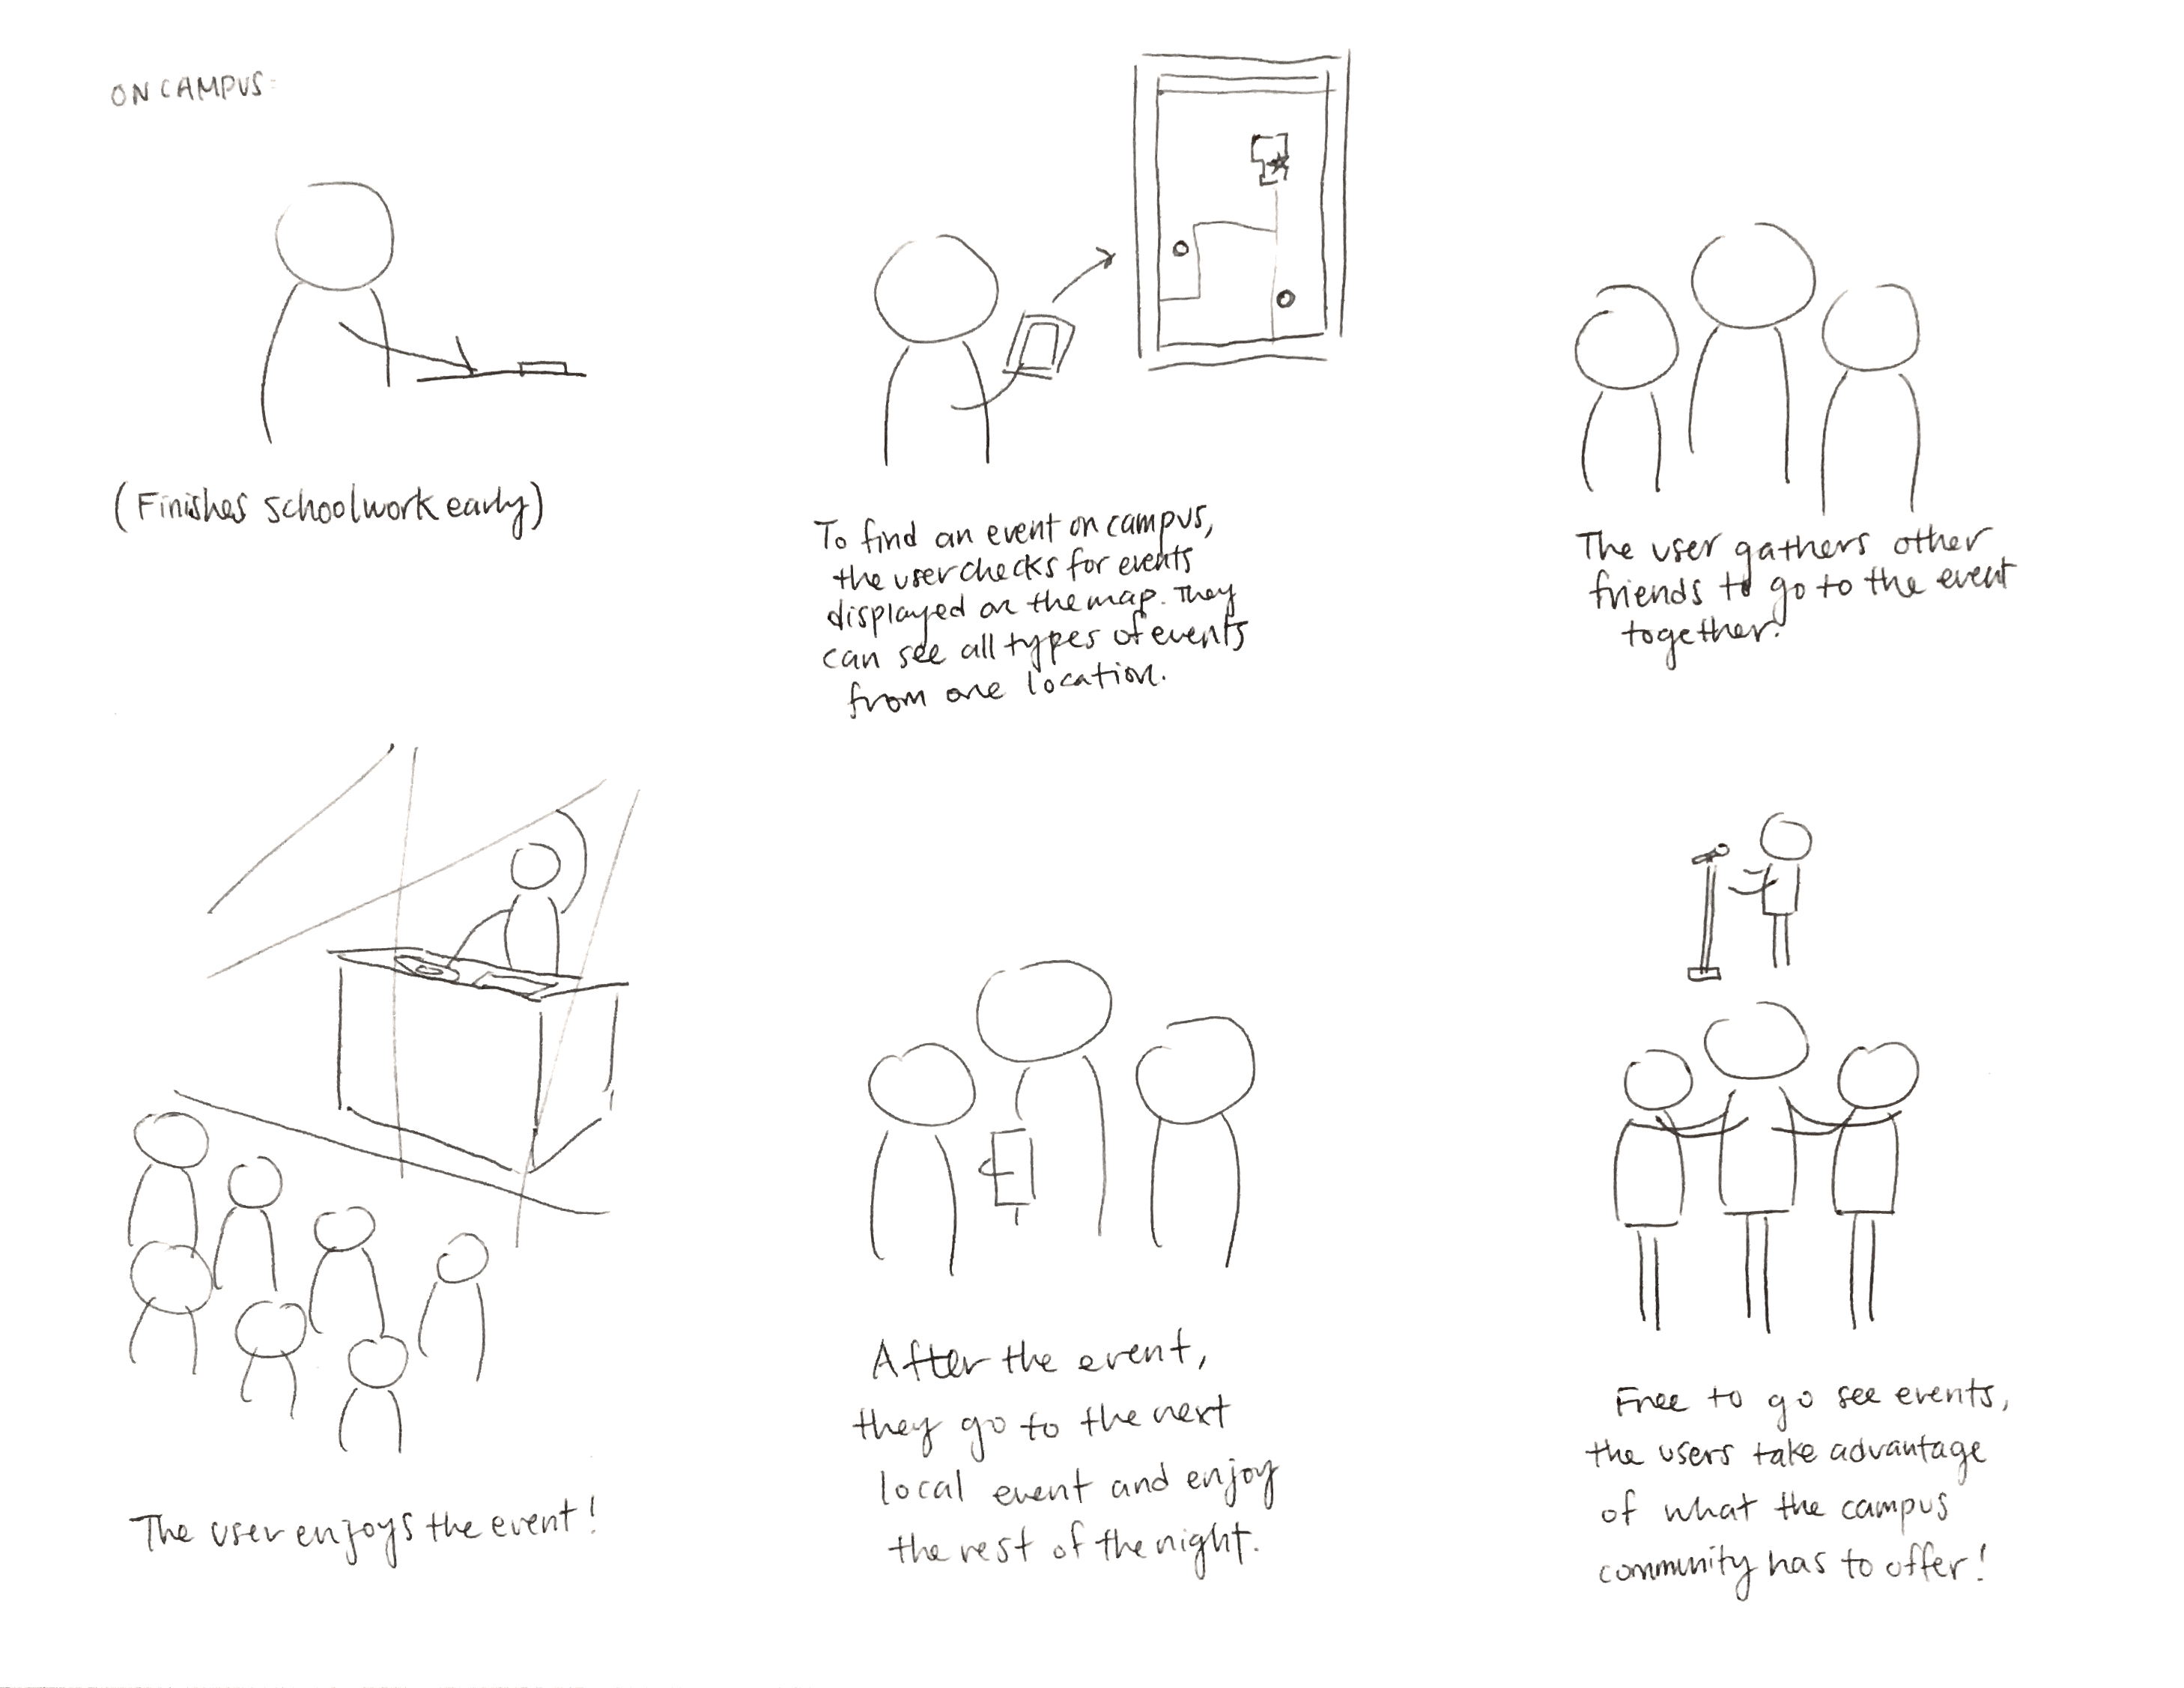 ON CAMPUS:
(Finishes schoolwork early)
To find an event on campus,
the user checks for events
displayed on the map. They
can see all types of events
from one location.
The user gathers other
friends to go to the event
together.
The user enjoys the event!
After the event,
they go to the next
local event and enjoy
the rest of the night.
Free to go see events,
the users take advantage
of what the campus
community has to offer!